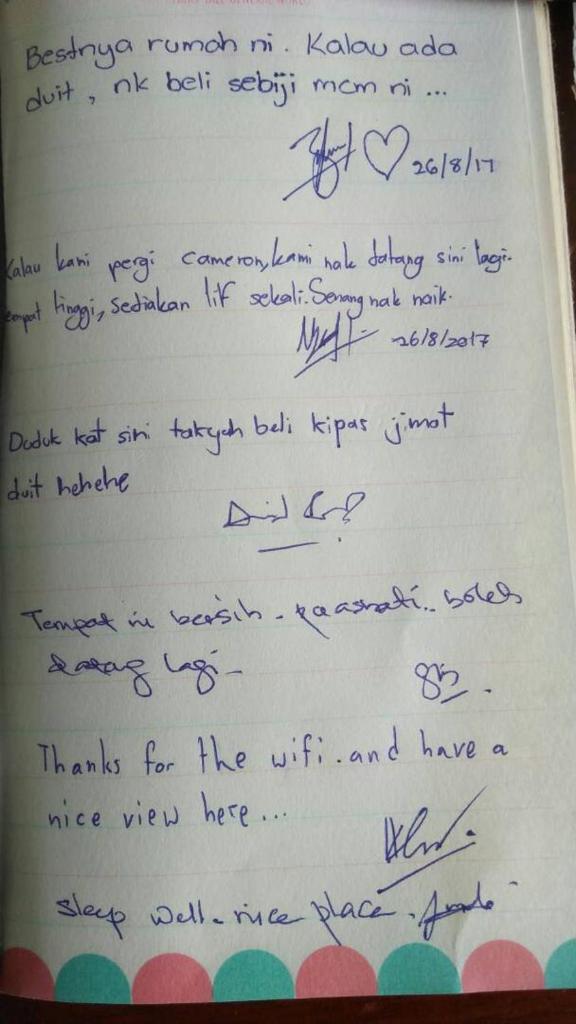 Bestnya rumah ni. Kalau ada
duit, nk beli sebiji mcm ni ...
26/8/17
Kalau kami pergi cameron, kami nak datang sini lagi.
tempat tinggi, sediakan lif sekali. Senang nak naik.
26/8/2017
Duduk kat sini takyah beli kipas jimat
duit hehehe
Tempat ni bersih - boleh
datang lagi -
Thanks for the wifi. and have a
nice view here...
Sleep well - nice place.